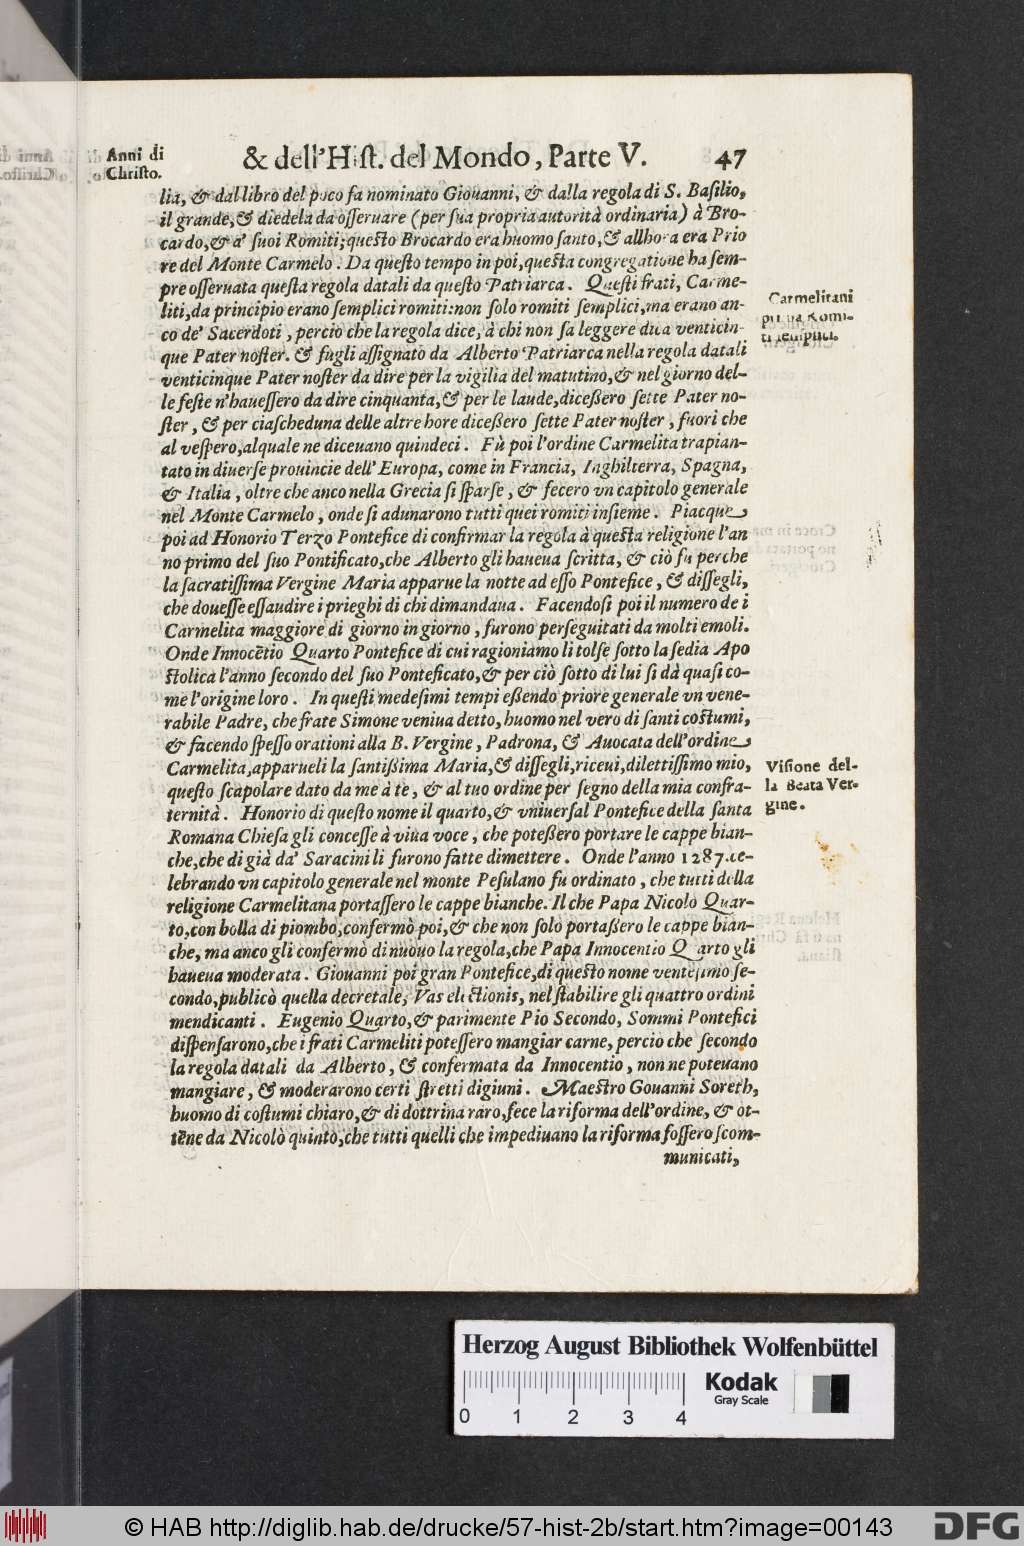 Anni di
Christo.
& dell'Hist. del Mondo, Parte V. 47
lia, & dal libro del poco fa nominato Giouanni, & dalla regola di S. Basilio,
il grande, & diedela da osseruare (per sua propria autorità ordinaria) à Bro-
cardo, & a' suoi Romiti; questo Brocardo era huomo santo, & allhora era Prio
re del Monte Carmelo. Da questo tempo in poi, questa congregatione ha sem-
pre osseruata questa regola datali da questo Patriarca. Questi frati, Carme-
liti, da principio erano semplici romiti: non solo romiti semplici, ma erano an-
co de' Sacerdoti, percio che la regola dice, à chi non sa leggere dica venticin-
que Pater noster. & fugli assignato da Alberto Patriarca nella regola datali
venticinque Pater noster da dire per la vigilia del matutino, & nel giorno del-
le feste n'hauessero da dire cinquanta, & per le laude, dicessero sette Pater no-
ster, & per ciascheduna delle altre hore dicessero sette Pater noster, fuori che
al vespero, alquale ne diceuano quindeci. Fù poi l'ordine Carmelita trapian-
tato in diuerse prouincie dell'Europa, come in Francia, Inghilterra, Spagna,
& Italia, oltre che anco nella Grecia si sparse, & fecero vn capitolo generale
nel Monte Carmelo, onde si adunarono tutti quei romiti insieme. Piacque
poi ad Honorio Terzo Pontefice di confirmar la regola à questa religione l'an
no primo del suo Pontificato, che Alberto gli haueua scritta, & ciò fu perche
la sacratissima Vergine Maria apparue la notte ad esso Pontefice, & dissegli,
che douesse essaudire i prieghi di chi dimandaua. Facendosi poi il numero de i
Carmelita maggiore di giorno in giorno, furono perseguitati da molti emoli.
Onde Innocētio Quarto Pontefice di cui ragioniamo li tolse sotto la sedia Apo
stolica l'anno secondo del suo Ponteficato, & per ciò sotto di lui si dà quasi co-
me l'origine loro. In questi medesimi tempi essendo priore generale vn vene-
rabile Padre, che frate Simone veniua detto, huomo nel vero di santi costumi,
& facendo spesso orationi alla B. Vergine, Padrona, & Auocata dell'ordine
Carmelita, apparueli la santissima Maria, & dissegli, riceui, dilettissimo mio,
questo scapolare dato da me à te, & al tuo ordine per segno della mia confra-
ternità. Honorio di questo nome il quarto, & vniuersal Pontefice della santa
Romana Chiesa gli concesse à viua voce, che potessero portare le cappe bian-
che, che di già da' Saracini li furono fatte dimettere. Onde l'anno 1287. ce-
lebrando vn capitolo generale nel monte Pesulano fu ordinato, che tutti della
religione Carmelitana portassero le cappe bianche. Il che Papa Nicolò Quar-
to, con bolla di piombo, confermò poi, & che non solo portassero le cappe bian-
che, ma anco gli confermò di nuouo la regola, che Papa Innocentio Quarto gli
haueua moderata. Giouanni poi gran Pontefice, di questo nome ventesimo se-
condo, publicò quella decretale, Vas electionis, nel stabilire gli quattro ordini
mendicanti. Eugenio Quarto, & parimente Pio Secondo, Sommi Pontefici
dispensarono, che i frati Carmeliti potessero mangiar carne, percio che secondo
la regola datali da Alberto, & confermata da Innocentio, non ne poteuano
mangiare, & moderarono certi stretti digiuni. Maestro Gouanni Soreth,
huomo di costumi chiaro, & di dottrina raro, fece la riforma dell'ordine, & ot-
tēne da Nicolò quinto, che tutti quelli che impediuano la riforma fossero scom-
municati,
Carmelitani
pria Romi-
ti semplici.
Visione del-
la Beata Ver-
gine.
Herzog August Bibliothek Wolfenbüttel
Kodak
Gray Scale
0 1 2 3 4
© HAB http://diglib.hab.de/drucke/57-hist-2b/start.htm?image=00143
DFG